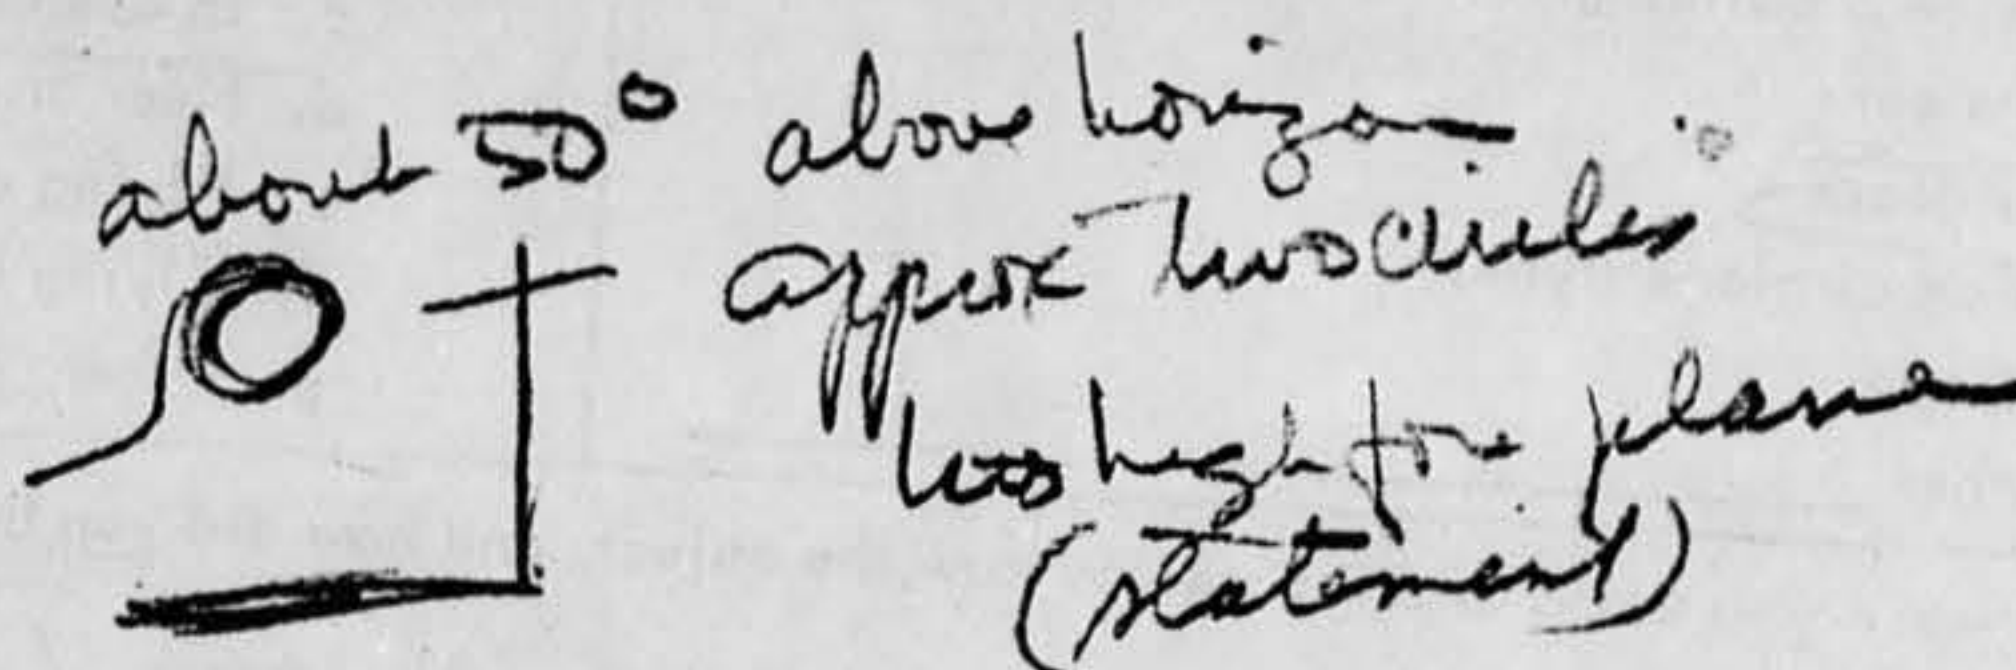 about 50° above horizon
approx two circles
too high for plane
(statement)